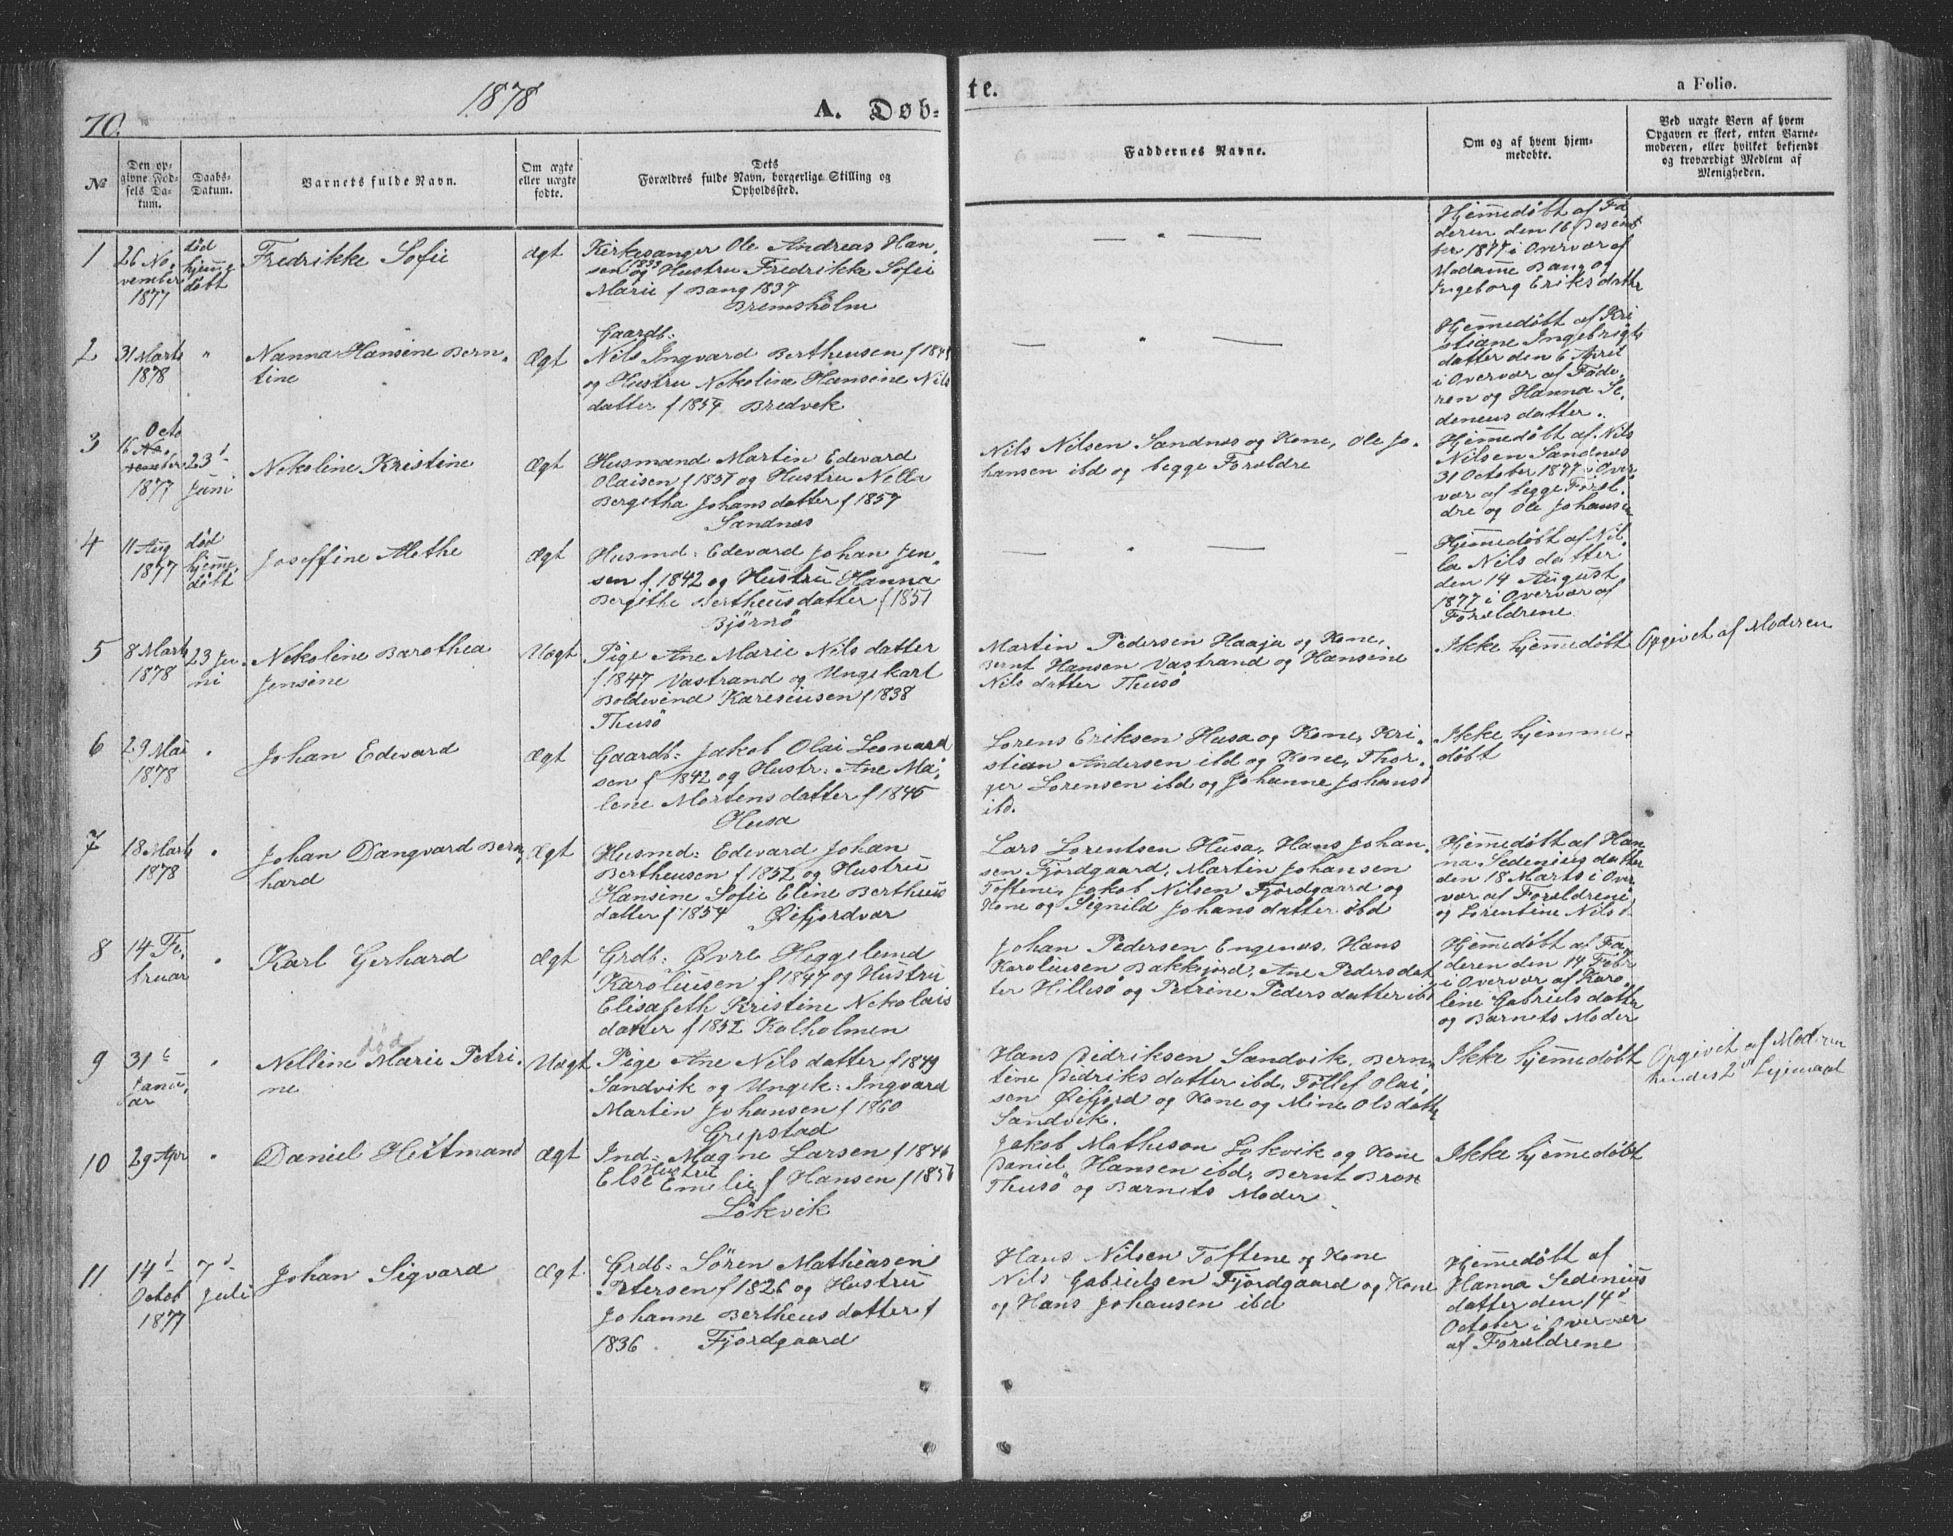 70.
1878
A. Døb-
te.
a Folio.
№
Den op-
givne Fød-
sels Da-
tum.
Daabs-
Datum.
Barnets fulde Navn.
Om ægte
eller uægte
fødte.
Dets
Forældres fulde Navn, borgerlige Stilling og
Opholdssted.
Faddernes Navne.
Om og af hvem hjem-
medøbte.
Ved uægte Børn af hvem
Opgaven er skeet, enten Barne-
moderen, eller hvilket bekjendt
og troværdigt Medlem af
Menigheden.
1
26 No
vember
1877
død
hjemme
døbt
Fredrikke Sofie
Ægt
Kirkesanger Ole Andreas Han-
sen 1833 og Hustru Fredrikke Sofie
Marie f Bang 1837
Bremsholm
Hjemedøbt af Fa
deren den 16 Desemb
ber 1877 i Overvær af
Madame Bang og
Ingeborg Eriksdatter
2
31 Marts
1878
"
Nanna Hansine Bern-
tine
Ægt
Gaardb:
Nils Ingvard Bertheusen f 184
og Hustru Nekoline Hansine Nils
datter f 1854 Bredvek
Hjemedøbt af Kri
stiane Ingebrigts
datter den 6 April
i Overvær af Fade-
ren og Hanna Se-
deneusdatter.
3
Octo
16
1877
23d
Juni
Nekoline Kristine
Ægt
Husmand Martin Edevard
Olaisen f 1857 og Hustru Nella
Bergitha Johansdatter f 1857
Sandnæs
Nils Nilsen Sandnæs og Kone, Ole Jo-
hansen ibd og begge Forældre
Hjemedøbt af Nils
Nilsen Sandnæs
31 October 1877 i Over
vær af begge Foræl-
dre og Ole Johansen
4
11 Aug
1877
død
hjeme
døbt
Joseffine Alethe
Ægt
Husmd: Edevard Johan Jen-
sen f 1842 og Hustru Hanna
Bergithe Bertheusdatter f 1851
Bjørnø
Hjemedøbt af Nil-
la Nilsdatter
den 14 August
1877 i Overvær af
Forældrene
5
8 Marts
1878
23 Ju
ni
Nekoline Barothea
Jensine
Uægt
Pige Ane Marie Nilsdatter
f 1847 Vastrand og Ungekarl
Boldevind Kareliusen f 1838
Thusö
Martin Pedersen Haaja og Kone,
Bernt Hansen Vastrand og Hansine
Nilsdatter Thusö
Ikke hjemmedøbt
Opgivet af Moderen
6
29 Mai
1878
"
Johan Edevard
Ægt
Gaardb: Jakob Olai Leonard
sen f 1842 og Hustr: Ane Ma-
lene Mortensdatter f 1845
Husa
Lorens Eriksen Husa og Kone, Kri-
stian Andersen ibd og Kone, Thor-
ger Lorensen ibd og Johanne Johansd
ibd.
Ikke hjemme-
døbt
7
18 Marts
1878
"
Johan Dangvard Bern
hard
Ægt
Husmd: Edevard Johan
Bertheusen f 1852 og Hustru
Hansine Sofie Eline Bertheus
datter f 1854 Øifjordvær
Lars Lorentsen Husa, Hans Johan-
sen Fjordgaard, Martin Johansen
Toftene, Jakob Nilsen Fjordgaard og
Kone og Signild Johansdatter ibd
Hjemedøbt af Han
na Sedeniusdatter
den 18 Marts i Over
vær af Forældrene
og Lorentine Nilsd.
8
14 Fe-
bruar
"
Karl Gerhard
Ægt
Grdb: Øvre Heggelund
Karoliusen f 1847 og Hustru
Elisabeth Kristine Nekolais
datter f 1852 Kalholmen
Johan Pedersen Engenæs, Hans
Karoliusen Bakkejord, Ane Pedersdat
ter Hillesö og Petrine Pedersdatter ibd
Hjemedøbt af Fa
deren den 14 Febr
i Overvær af Karo-
line Gabrielsdatter
og Barnets Moder
9
31te
Janu-
ar
"
død
Nelline Marie Petri-
ne
Uægt
Pige Ane Nilsdatter f 1849
Sandvik og Ungek: Ingvard
Martin Johansen f 1860
Grepstad
Hans Didriksen Sandvik, Bern-
tine Didriksdatter ibd, Tollef Olai-
sen Øifjord og Kone og Mine Olsdatter
Sandvik.
Ikke hjemedøbt
Opgivet af Moderen
hendes 2d Lejermaal
10
29 Apr
"
Daniel Hetmand
Ægt
Ind: Magne Larsen f 1846
Hustru
Else Emelie f Hansen f 1857
Lökvik
Jakob Mathesen Lokvik og Kone
Daniel Hansen ibd, Bernt Brox
Thusö og Barnets Moder.
Ikke hjemmedøbt
11
14d
Octob
1877
7d
Juli
Johan Sigvard
Ægt.
Grdb: Sören Mathiasen
Petersen f 1826 og Hustru
Johanne Bertheusdatter f
1836. Fjordgaard
Hans Nilsen Toftene og Kone
Nils Gabrielsen Fjordgaard og Kone
og Hans Johansen ibd
Hjemedøbt af
Hanna Sedenius
datter den 14d
October i Overvær
af Forældrene